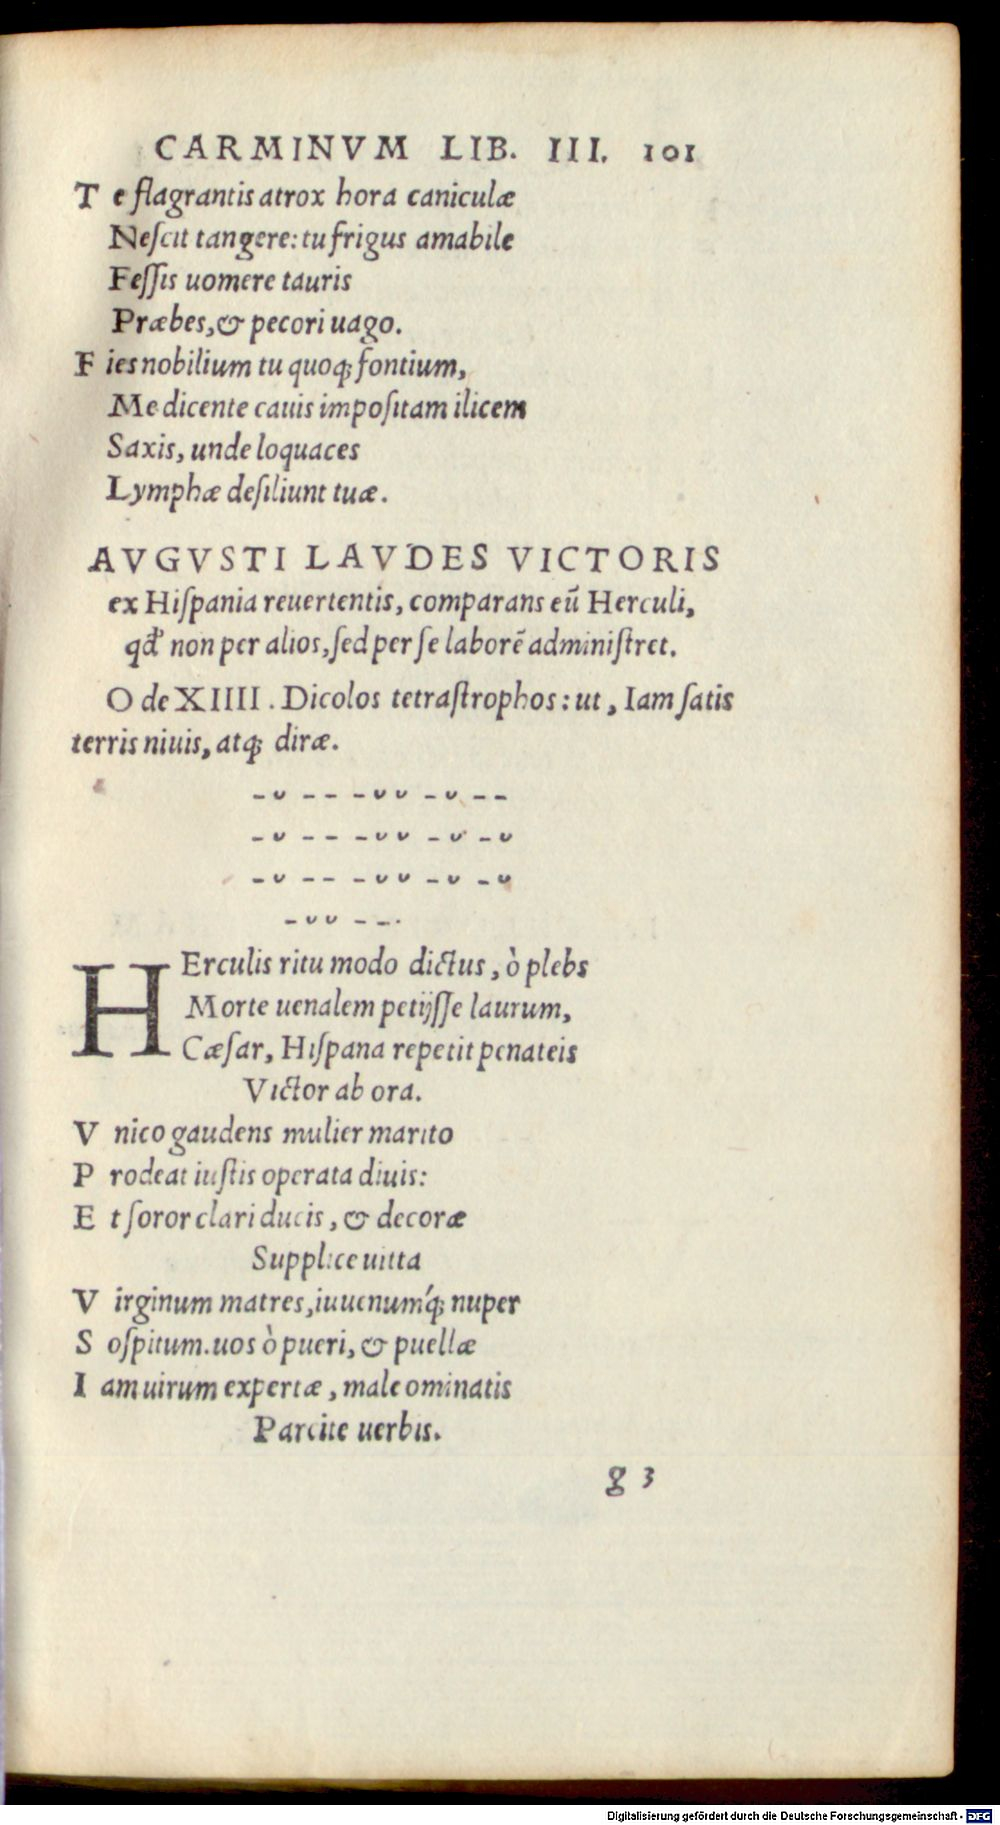 CARMINVM LIB. III. 101
T e flagrantis atrox hora caniculæ
Neſcit tangere: tu frigus amabile
Feſſis uomere tauris
Præbes, & pecori uago.
F ies nobilium tu quoqꝫ fontium,
Me dicente cauis impoſitam ilicem
Saxis, unde loquaces
Lymphæ deſiliunt tuæ.
AVGVSTI LAVDES VICTORIS
ex Hiſpania reuertentis, comparans eũ Herculi,
qđ non per alios, ſed per ſe laborẽ adminiſtret.
O de XIIII. Dicolos tetraſtrophos: ut, Iam ſatis
terris niuis, atqꝫ diræ.
–⏑ –– –⏑⏑ –⏑ ––
–⏑ –– –⏑⏑ –⏑ –⏑
–⏑ –– –⏑⏑ –⏑ –⏑
–⏑⏑ ––.
HErculis ritu modo dictus, ò plebs
Morte uenalem petijſſe laurum,
Cæſar, Hiſpana repetit penateis
Victor ab ora.
V nico gaudens mulier marito
P rodeat iuſtis operata diuis:
E t ſoror clari ducis, & decoræ
Supplice uitta
V irginum matres, iuuenuḿqꝫ nuper
S oſpitum. uos ò pueri, & puellæ
I am uirum expertæ, male ominatis
Parcite uerbis.
g 3
Digitalisierung gefördert durch die Deutsche Forschungsgemeinschaft - DFG